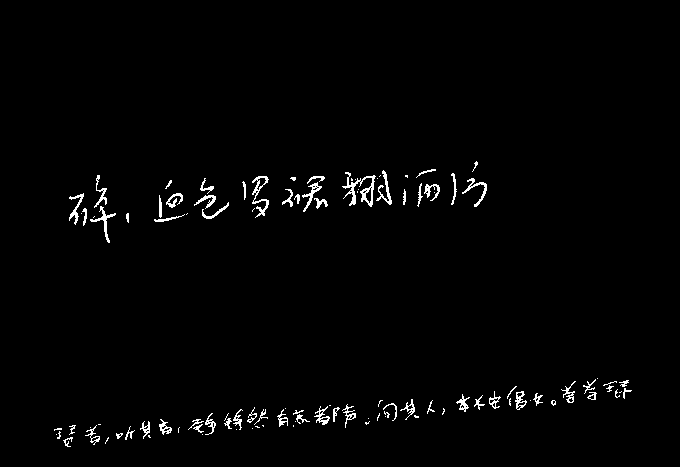 碎,血色罗裙翻酒污
琶者,听其音,铮铮然有京都声。问其人,本长安倡女。尝学琵